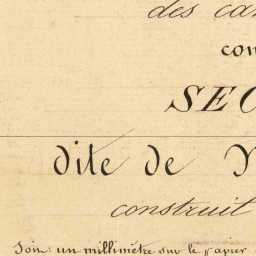 des ca
con
SEC
dite de
construit
Soit: un millimètre sur le papier